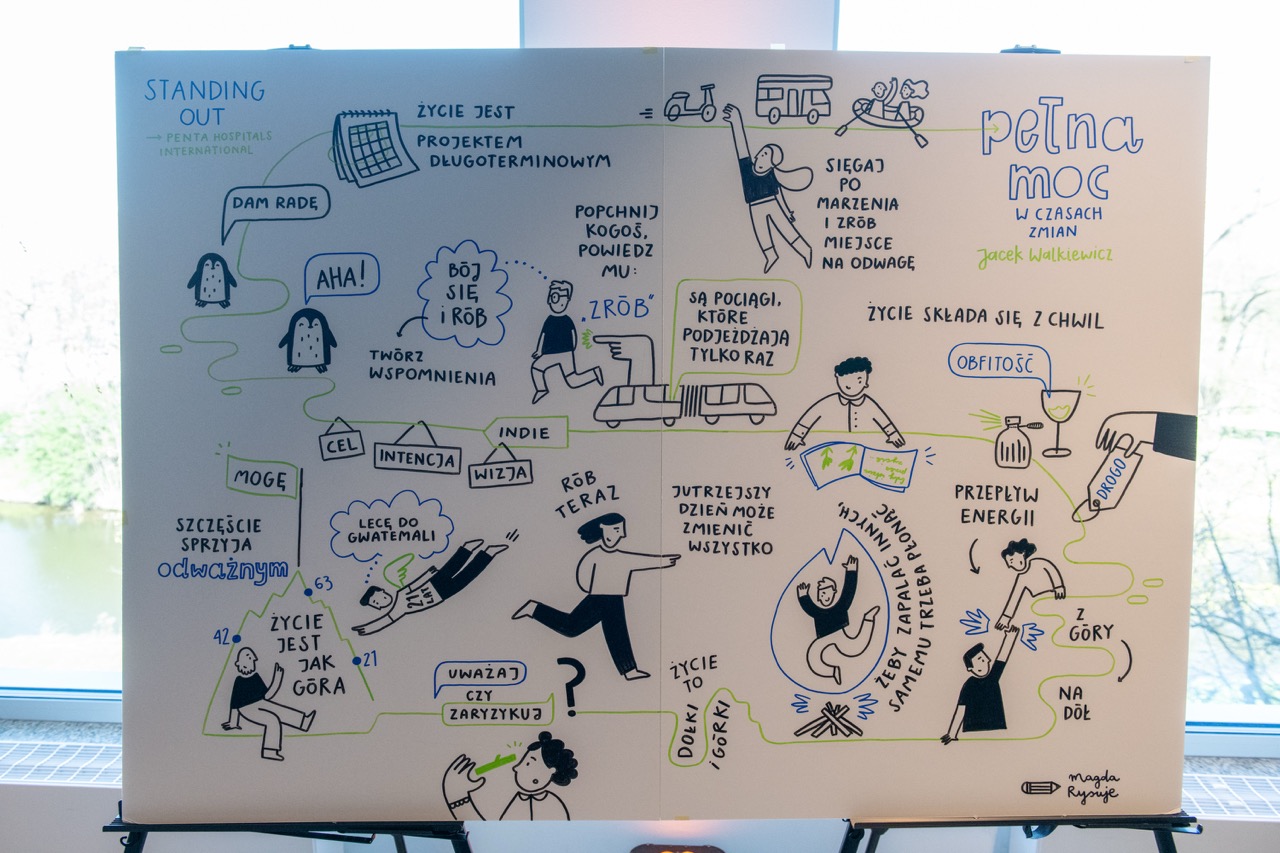 STANDING
OUT
→ PENTA HOSPITALS
INTERNATIONAL
ŻYCIE JEST
PROJEKTEM
DŁUGOTERMINOWYM
pełna
moc
W CZASACH
ZMIAN
Jacek Walkiewicz
SIĘGAJ
PO
MARZENIA
I ZRÓB
MIEJSCE
NA ODWAGĘ
DAM RADĘ
AHA!
BÓJ
SIĘ
i RÓB
TWÓRZ
WSPOMNIENIA
POPCHNIJ
KOGOŚ,
POWIEDZ
MU:
„ZRÓB"
SĄ POCIĄGI,
KTÓRE
PODJEŻDŻAJĄ
TYLKO RAZ
ŻYCIE SKŁADA SIĘ Z CHWIL
OBFITOŚĆ
DROGO
CEL
INTENCJA
WIZJA
INDIE
MOGĘ
SZCZĘŚCIE
SPRZYJA
odważnym
LECĘ DO
GWATEMALI
21
LAT
RÓB
TERAZ
JUTRZEJSZY
DZIEŃ MOŻE
ZMIENIĆ
WSZYSTKO
ŻEBY ZAPALAĆ INNYCH,
SAMEMU TRZEBA PŁONĄĆ
PRZEPŁYW
ENERGII
Z
GÓRY
NA
DÓŁ
63
42
21
ŻYCIE
JEST
JAK
GÓRA
UWAŻAJ
CZY
ZARYZYKUJ
?
ŻYCIE
TO
DOŁKI
i GÓRKI
Magda
Rysuje